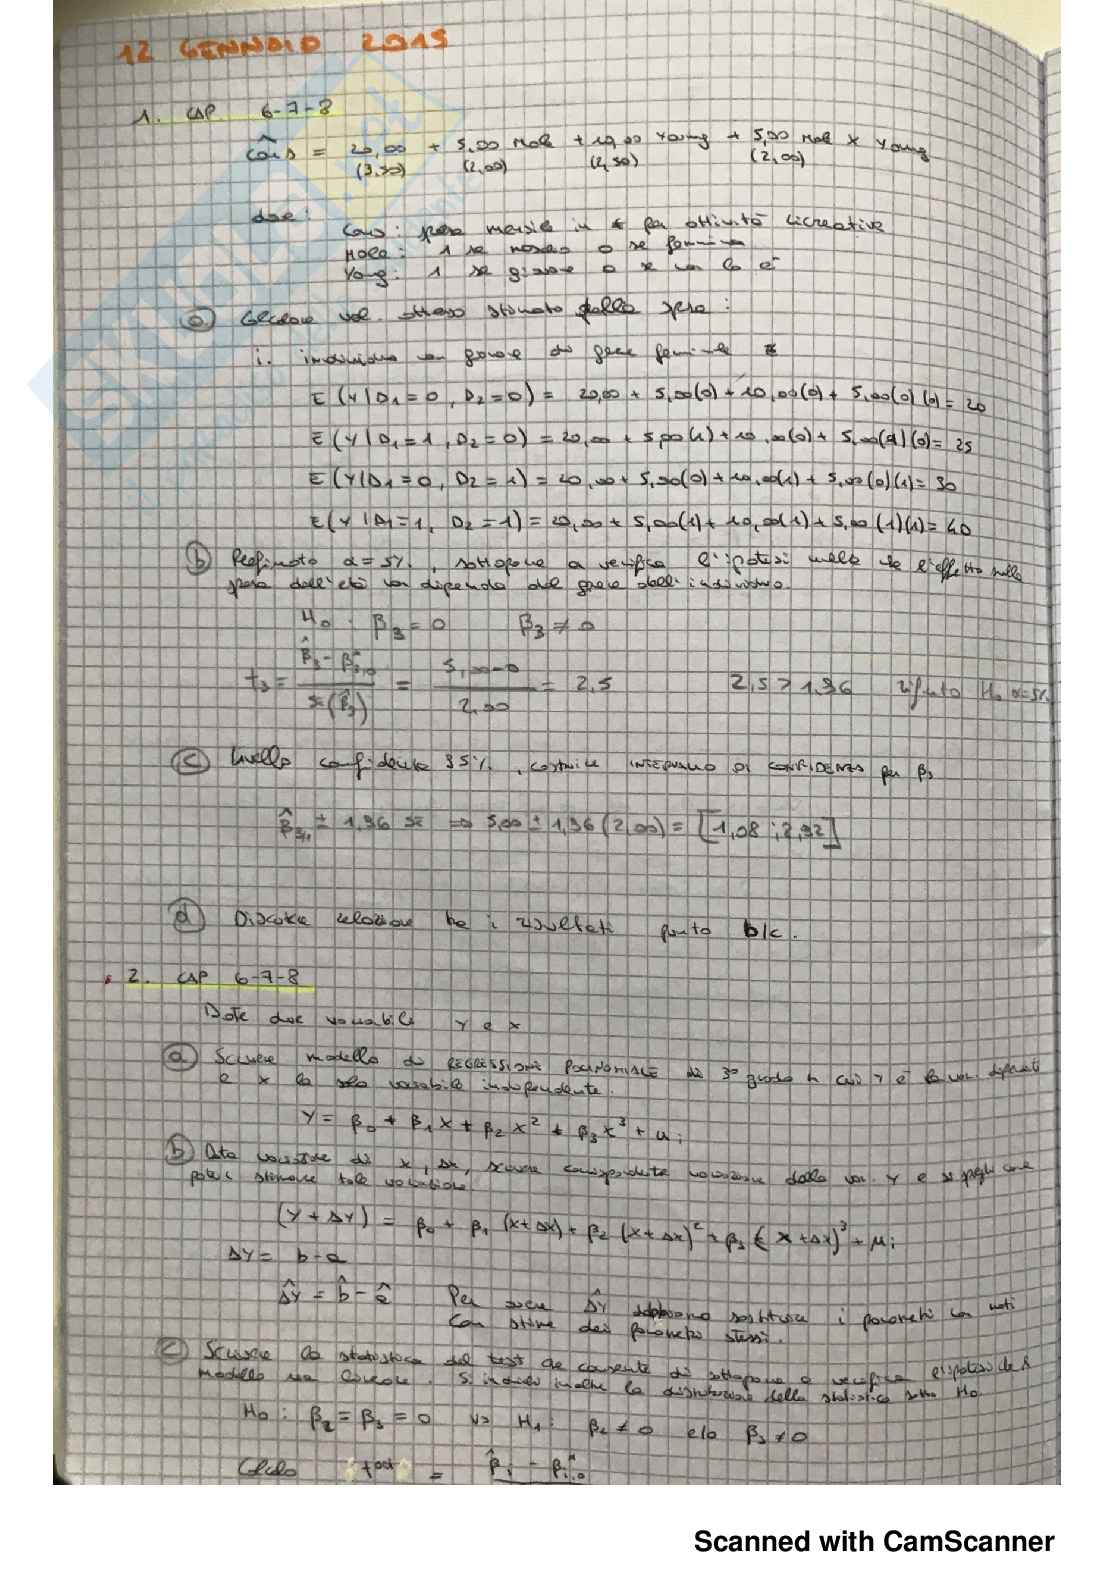 12 GENNAIO 2015
1. CAP. 6-7-8
côns = 20,00 + 5,00 Male + 10,00 Young + 5,00 Male x Young
(3,50) (2,00) (2,50) (2,00)
dove:
Cons: spesa mensile in € per attività ricreative
Male: 1 se maschio 0 se femmina
Yong: 1 se giovane 0 se non lo è
a Calcolare val. atteso stimato della spesa:
i. individuo non giovane di genere femminile
E (Y|D1=0, D2=0) = 20,00 + 5,00(0) + 10,00(0) + 5,00(0)(0) = 20
E (Y|D1=1, D2=0) = 20,00 + 5,00(1) + 10,00(0) + 5,00(1)(0) = 25
E (Y|D1=0, D2=1) = 20,00 + 5,00(0) + 10,00(1) + 5,00(0)(1) = 30
E (Y|D1=1, D2=1) = 20,00 + 5,00(1) + 10,00(1) + 5,00(1)(1) = 40
b Prefissato α=5%, sottoporre a verifica l'ipotesi nulla che l'effetto sulla
spesa dell'età non dipenda dal genere dell'individuo.
H0: β3 = 0 β3 ≠ 0
t3 = (β̂3 - β*3,0) / se(β̂3) = (5,00-0) / 2,00 = 2,5 2,5 > 1,96 rifiuto H0 α=5%
c livello confidenza 95%, costruire INTERVALLO DI CONFIDENZA per β3
β̂3 ± 1,96 se => 5,00 ± 1,96 (2,00) = [1,08 ; 2,92]
d Discutere relazione tra i risultati punto b/c.
2. CAP 6-7-8
Date due variabili Y e X
a Scrivere modello di REGRESSIONE POLINOMIALE di 3° grado in cui Y è la var. dipendente
e X la sola variabile indipendente.
Y = β0 + β1X + β2X² + β3X³ + ui
b Data variazione di X, Δx, scrivere corrispondente variazione della var. Y e si spieghi come
poter stimare tale variazione
(Y + ΔY) = β0 + β1 (X+ΔX) + β2 (X+ΔX)² + β3 (X+ΔX)³ + μi
ΔY = b - a
Δ̂Y = b̂ - â Per avere Δ̂Y dobbiamo sostituire i parametri non noti
con stime dei parametri stessi.
c Scrivere la statistica del test che consente di sottoporre a verifica l'ipotesi che il
modello sia lineare. Si indichi inoltre la distribuzione della statistica sotto H0
H0: β2 = β3 = 0 vs H1: β2 ≠ 0 e/o β3 ≠ 0
Calcolo t act = β̂i - β*i,0
Scanned with CamScanner